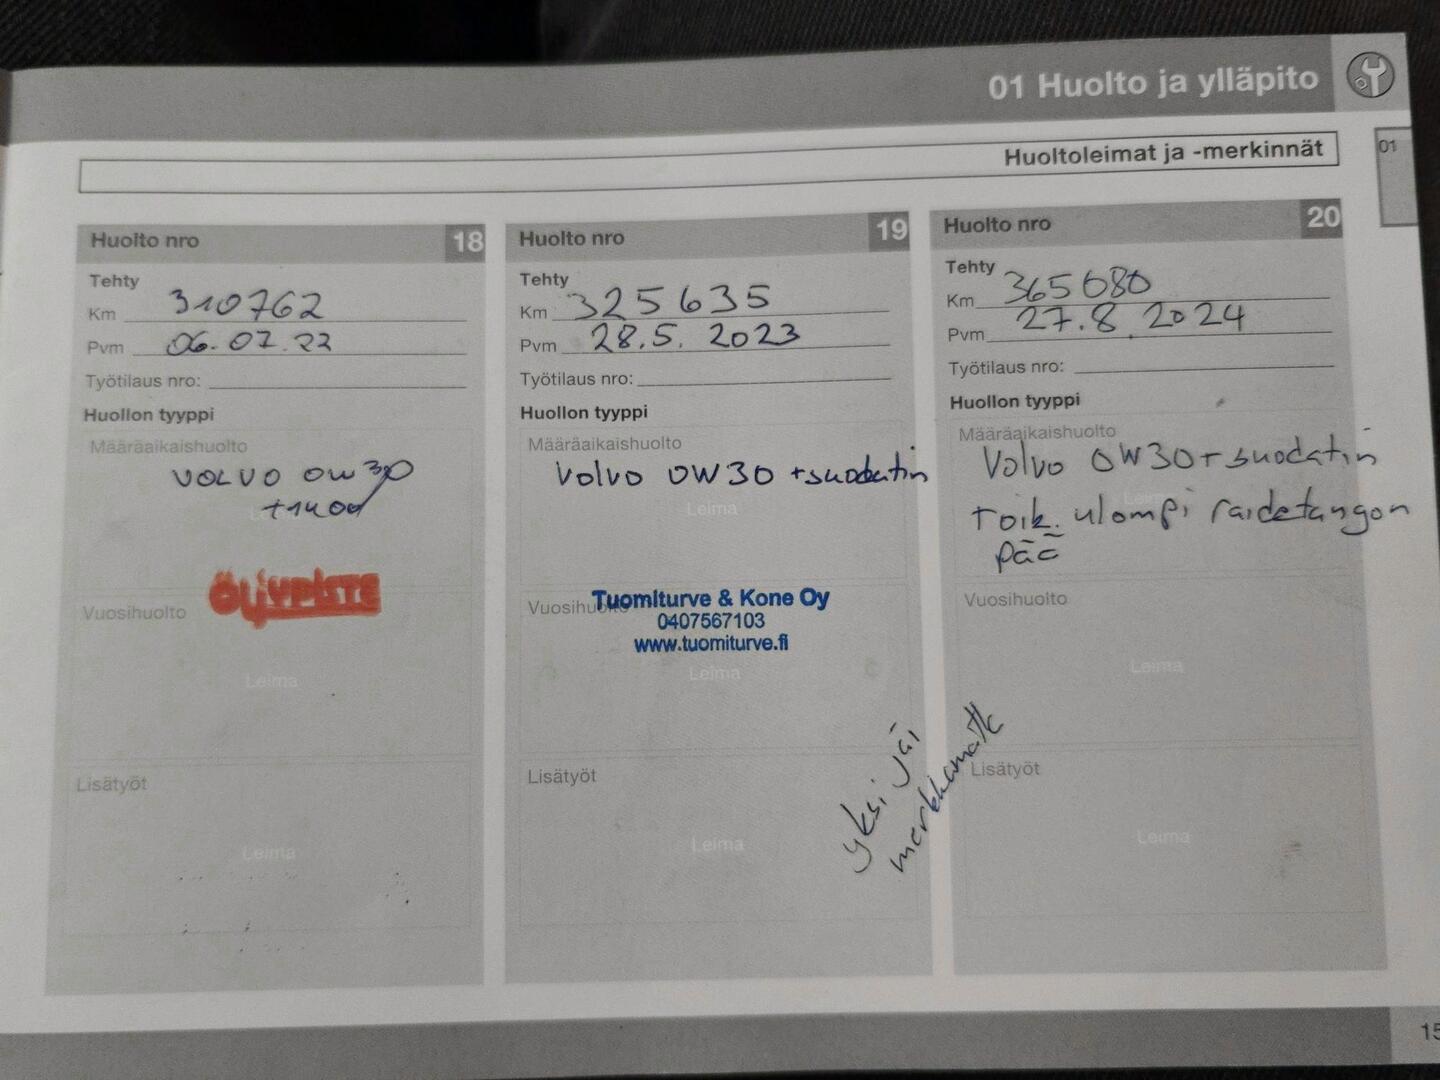 01 Huolto ja ylläpito
Huoltoleimat ja -merkinnät
01
Huolto nro 18
Tehty
Km 310762
Pvm 06.07.22
Työtilaus nro:
Huollon tyyppi
Määräaikaishuolto
VOLVO 0W30
Leima
ÖLJYPISTE
Vuosihuolto
Leima
Lisätyöt
Leima
Huolto nro 19
Tehty
Km 325635
Pvm 28.5. 2023
Työtilaus nro:
Huollon tyyppi
Määräaikaishuolto
Volvo 0W30 +suodatin
Leima
Vuosihuolto
Tuomiturve & Kone Oy
0407567103
www.tuomiturve.fi
Leima
Lisätyöt
Leima
yksi jäi
merkkamatta
Huolto nro 20
Tehty
Km 365080
Pvm 27.8.2024
Työtilaus nro:
Huollon tyyppi
Määräaikaishuolto
Volvo 0W30+suodatin
Leima
+oik. ulompi raidetangon
pää
Vuosihuolto
Leima
Lisätyöt
Leima
15